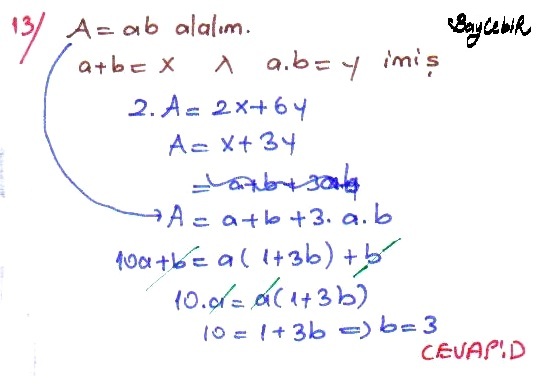 13/ A = ab alalım. BayCebiR
a+b = x ∧ a.b = y imiş
2. A = 2x+6y
A = x+3y
= a+b+3ab
A = a+b+3.a.b
10a+b = a(1+3b)+b
10.a = a(1+3b)
10 = 1+3b => b = 3
CEVAP:D